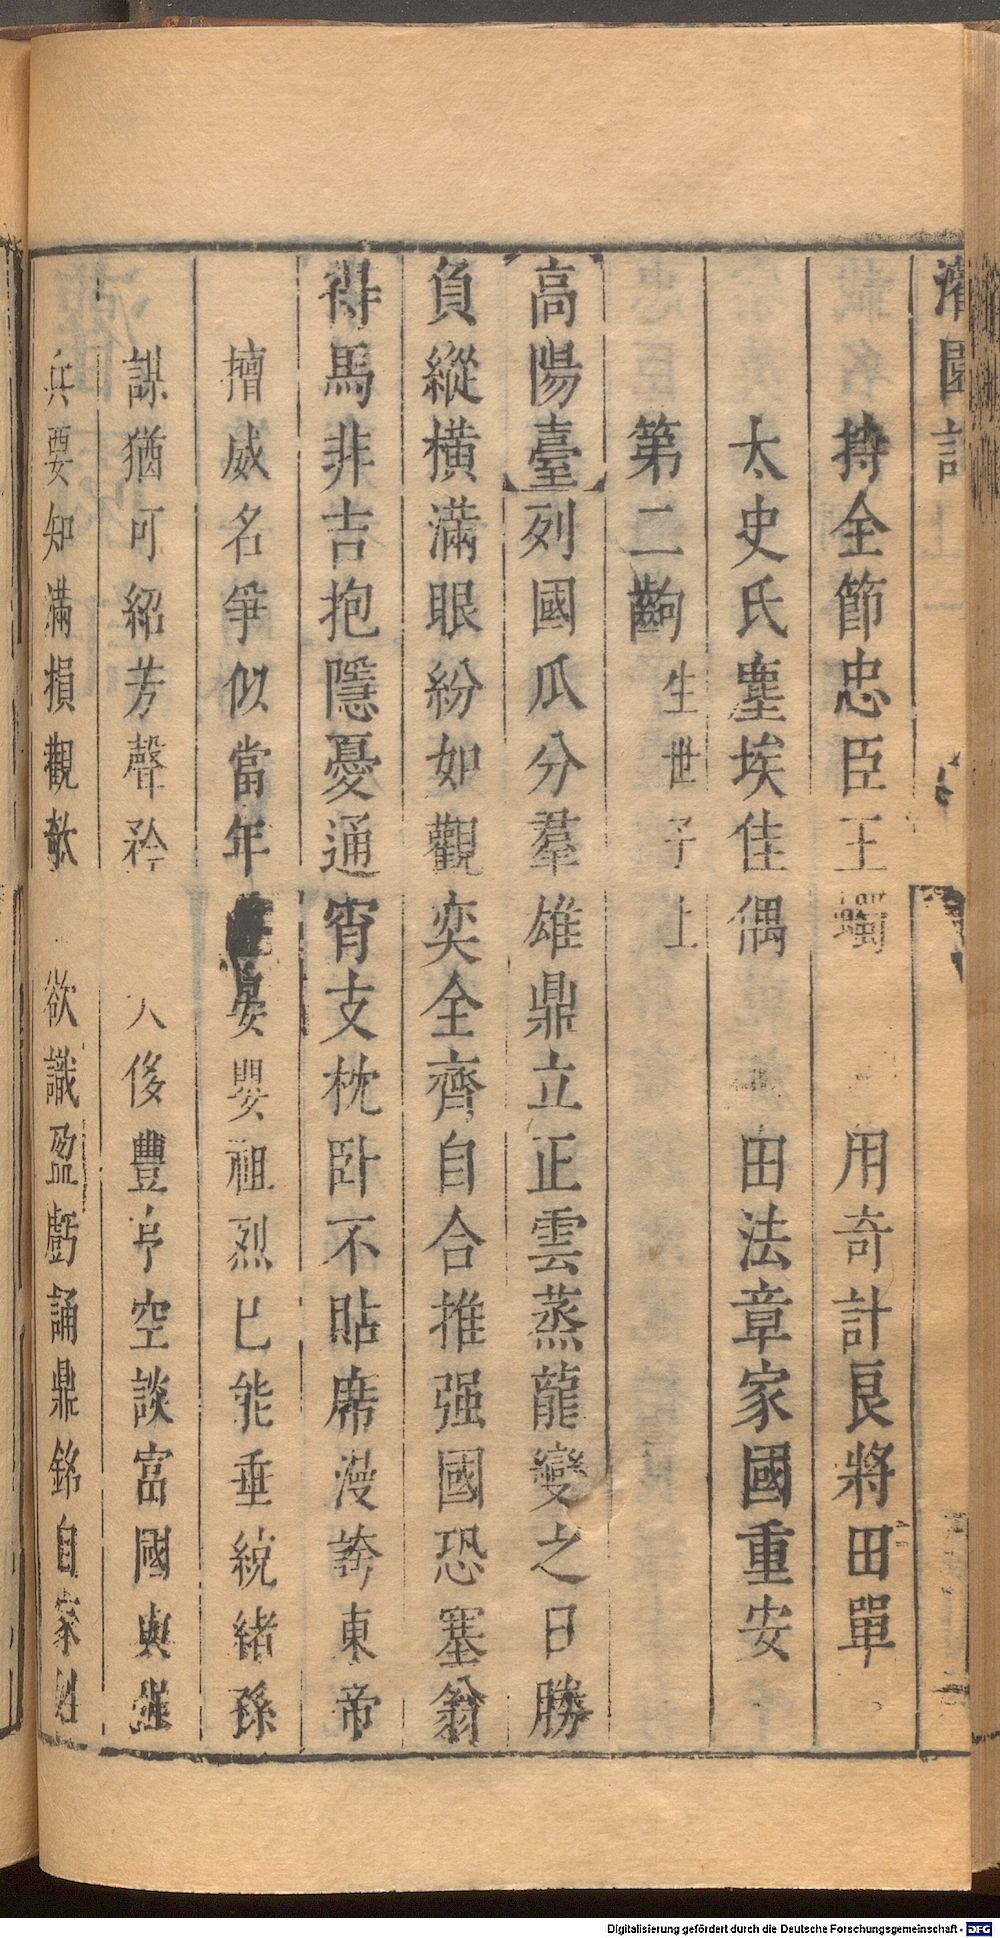 灌園記 上
持全節忠臣王蠋 用奇計良將田單
太史氏塵埃佳偶 田法章家國重安
第二齣 生世子上
高陽臺列國瓜分羣雄鼎立正雲蒸龍變之日勝
負縱橫滿眼紛如觀奕全齊自合推强國恐塞翁
得馬非吉抱隱憂通宵支枕卧不貼席漫誇東帝
擅威名爭似當年晏嬰祖烈已能垂統緒孫
謀猶可紹芳聲矜 人侈豐亨空談富國與強
兵要知滿損觀欹 欲識盈虧誦鼎銘自家姓
Digitalisierung gefördert durch die Deutsche Forschungsgemeinschaft - DFG